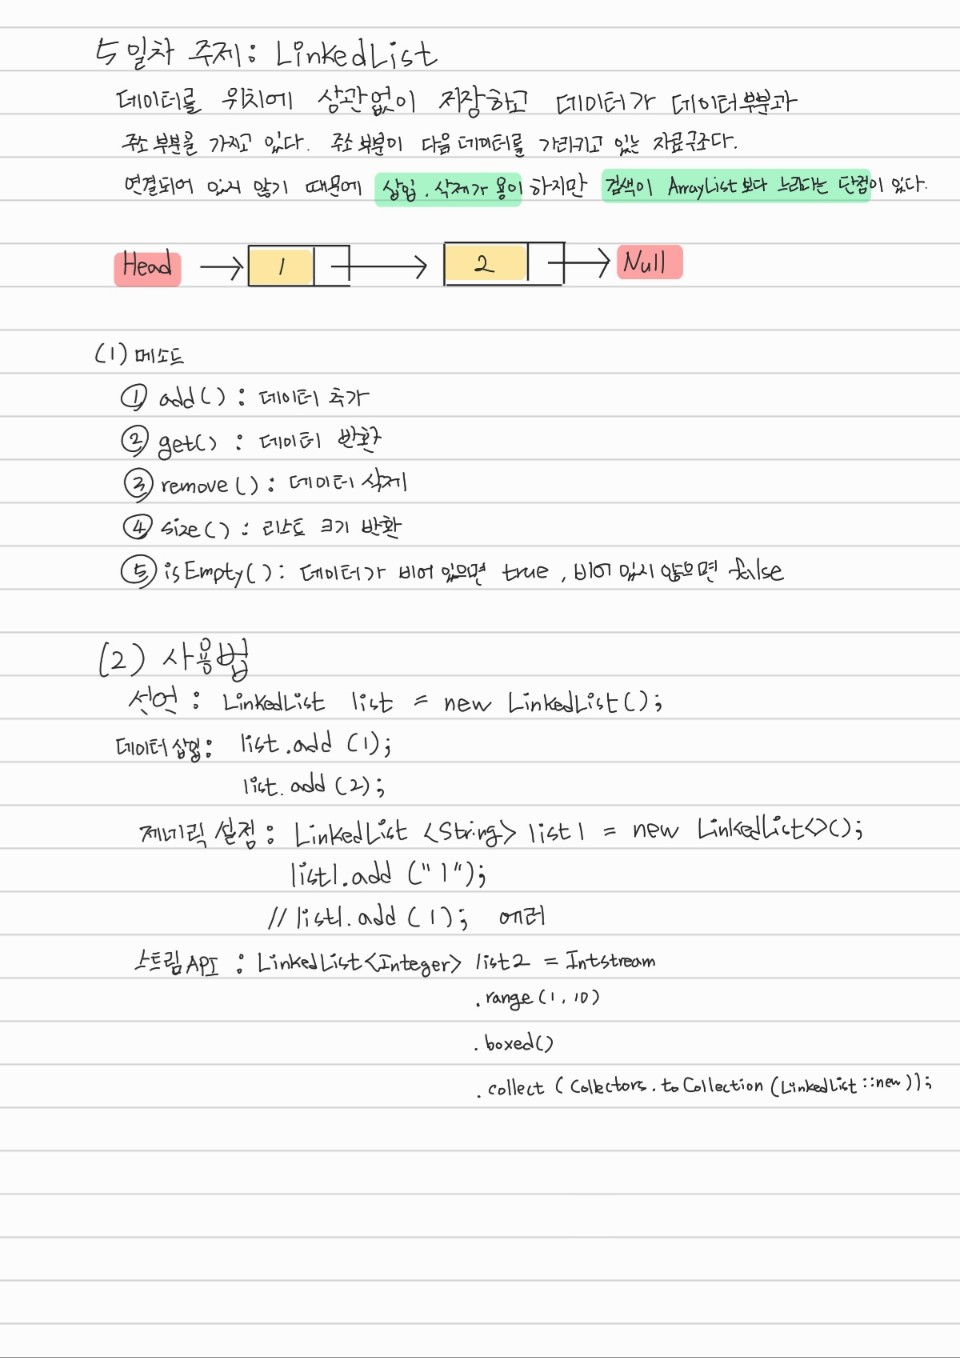 5일차 주제: LinkedList
데이터를 위치에 상관없이 저장하고 데이터가 데이터부분과
주소부분을 가지고 있다. 주소부분이 다음 데이터를 가리키고 있는 자료구조다.
연결되어 있지 않기 때문에 삽입, 삭제가 용이하지만 검색이 ArrayList보다 느리다는 단점이 있다.
Head 1 2 Null
(1) 메소드
① add() : 데이터 추가
② get() : 데이터 반환
③ remove() : 데이터 삭제
④ size() : 리스트 크기 반환
⑤ isEmpty() : 데이터가 비어 있으면 true, 비어 있지 않으면 false
(2) 사용법
선언 : LinkedList list = new LinkedList();
데이터 삽입: list.add (1);
list.add (2);
제네릭 설정 : LinkedList <String> list1 = new LinkedList<>();
list1.add ("1");
// list1.add (1); 에러
스트림 API : LinkedList<Integer> list2 = Intstream
.range(1, 10)
.boxed()
.collect (Collectors.toCollection (LinkedList::new));